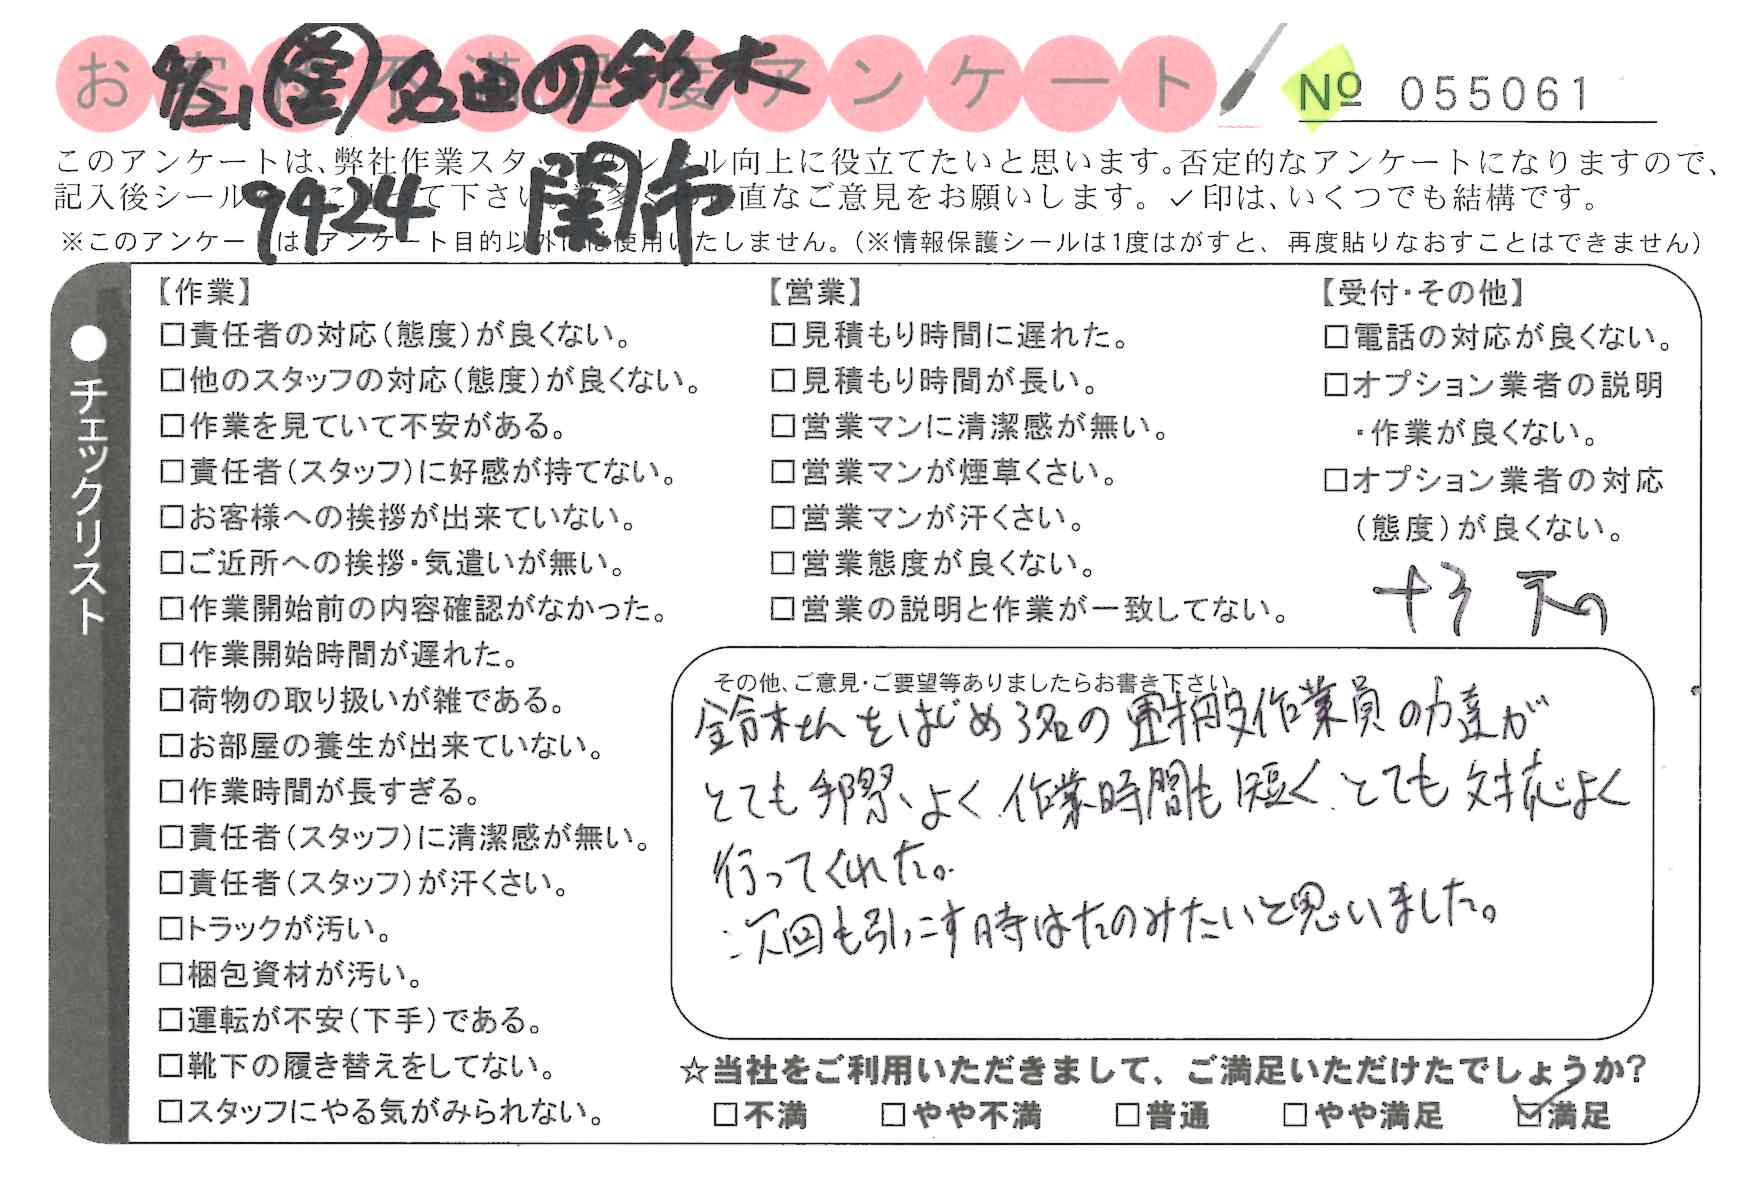 お客様不満足度アンケート
4/21(金)名曲の鈴木
№ 055061
9424 関市
このアンケートは、弊社作業スタッフのレベル向上に役立てたいと思います。否定的なアンケートになりますので、
記入後シール 下さい。 直なご意見をお願いします。✓印は、いくつでも結構です。
※このアンケートは、アンケート目的以外には使用いたしません。(※情報保護シールは1度はがすと、再度貼りなおすことはできません)
●チェックリスト
【作業】
□責任者の対応(態度)が良くない。
□他のスタッフの対応(態度)が良くない。
□作業を見ていて不安がある。
□責任者(スタッフ)に好感が持てない。
□お客様への挨拶が出来ていない。
□ご近所への挨拶・気遣いが無い。
□作業開始前の内容確認がなかった。
□作業開始時間が遅れた。
□荷物の取り扱いが雑である。
□お部屋の養生が出来ていない。
□作業時間が長すぎる。
□責任者(スタッフ)に清潔感が無い。
□責任者(スタッフ)が汗くさい。
□トラックが汚い。
□梱包資材が汚い。
□運転が不安(下手)である。
□靴下の履き替えをしてない。
□スタッフにやる気がみられない。
【営業】
□見積もり時間に遅れた。
□見積もり時間が長い。
□営業マンに清潔感が無い。
□営業マンが煙草くさい。
□営業マンが汗くさい。
□営業態度が良くない。
□営業の説明と作業が一致してない。
【受付・その他】
□電話の対応が良くない。
□オプション業者の説明
・作業が良くない。
□オプション業者の対応
(態度)が良くない。
その他、ご意見・ご要望等ありましたらお書き下さい。
鈴木さんをはじめ3名の運搬作業員の方達が
とても手際よく、作業時間も短く、とても対応よく
行ってくれた。
次回も引こす時はたのみたいと思いました。
☆当社をご利用いただきまして、ご満足いただけたでしょうか?
□不満 □やや不満 □普通 □やや満足 ☑満足